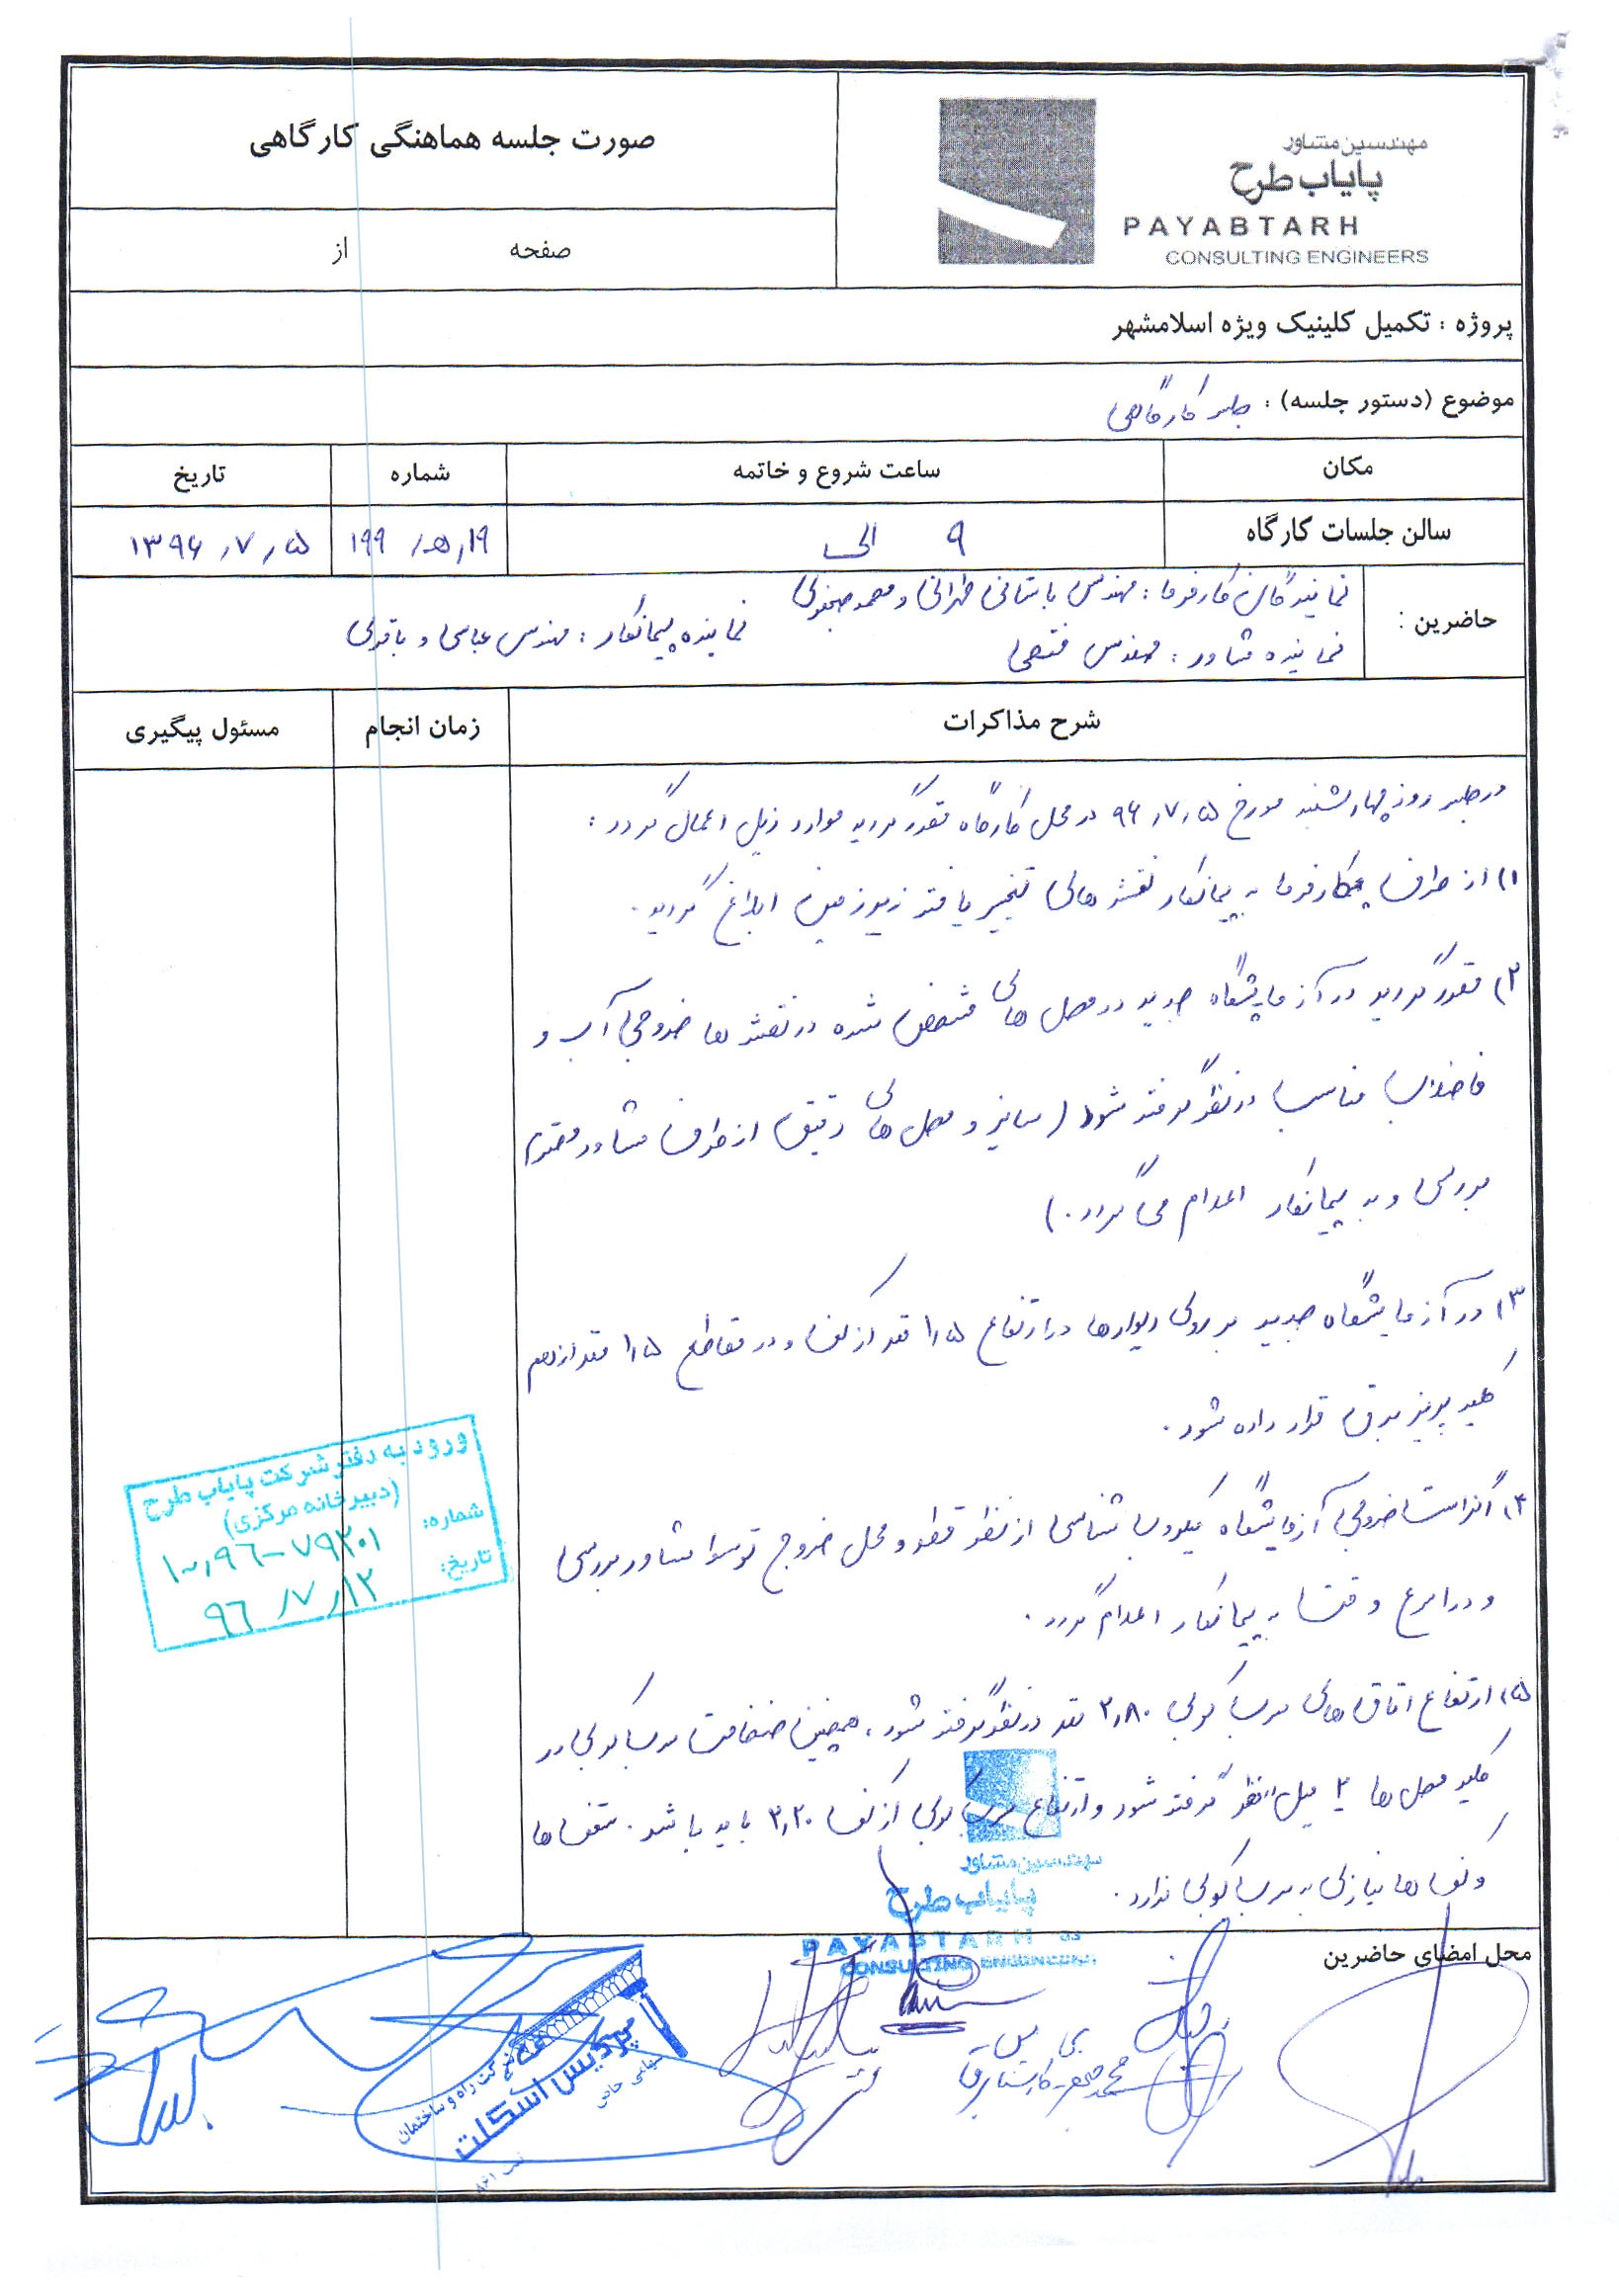 صورت جلسه هماهنگی کارگاهی
صفحه از
مهندسین مشاور
پایاب طرح
PAYABTARH
CONSULTING ENGINEERS
پروژه : تکمیل کلینیک ویژه اسلامشهر
موضوع (دستور جلسه) : جلسه کارگاهی
مکان ساعت شروع و خاتمه شماره تاریخ
سالن جلسات کارگاه ۹ الی ۱۹۹ /ه/ ۱۹ ۱۳۹۶/۷/۵
حاضرین :
نمایندگان کارفرما : مهندس باستانی طهرانی و محمدجعفری
نماینده مشاور : مهندس فتحی نماینده پیمانکار : مهندس عباسی و باقری
شرح مذاکرات زمان انجام مسئول پیگیری
در جلسه روز چهارشنبه مورخ ۹۶/۷/۵ در محل کارگاه مقرر گردید موارد ذیل اعمال گردد :
۱) از طرف کارفرما به پیمانکار نقشه های تغییر یافته زیرزمین ابلاغ گردید.
۲) مقرر گردید در آزمایشگاه جدید در محل های مشخص شده در نقشه ها خروجی آب و
فاضلاب مناسب در نظر گرفته شود (سایز و محل های دقیق از طرف مشاور محترم
بررسی و به پیمانکار اعلام می گردد.)
۳) در آزمایشگاه جدید بر روی دیوارها در ارتفاع ۱/۵ متر از کف و در مقاطع ۱/۵ متر از هم
کلید پریز برق قرار داده شود.
۴) اگزاست خروجی آزمایشگاه میکروب شناسی از نظر قطر و محل خروج توسط مشاور بررسی
و در اسرع وقت به پیمانکار اعلام گردد.
۵) ارتفاع اتاق های سرب کوبی ۲/۸۰ متر در نظر گرفته شود ، همچنین ضخامت سرب کوبی در
کلیه محل ها ۲ میل در نظر گرفته شود و ارتفاع سرب کوبی از کف ۲/۲۰ باید باشد. سقف ها
و کف ها نیازی به سرب کوبی ندارد.
ورود به دفتر شرکت پایاب طرح
(دبیرخانه مرکزی)
شماره: ۷۹۲۰۱-۱۰/۹۶
تاریخ: ۹۶/۷/۱۲
مهندسین مشاور
پایاب طرح
PAYABTARH
CONSULTING ENGINEERS
محل امضای حاضرین
شرکت راه و ساختمان
پردیس اسکلت
سهامی خاص